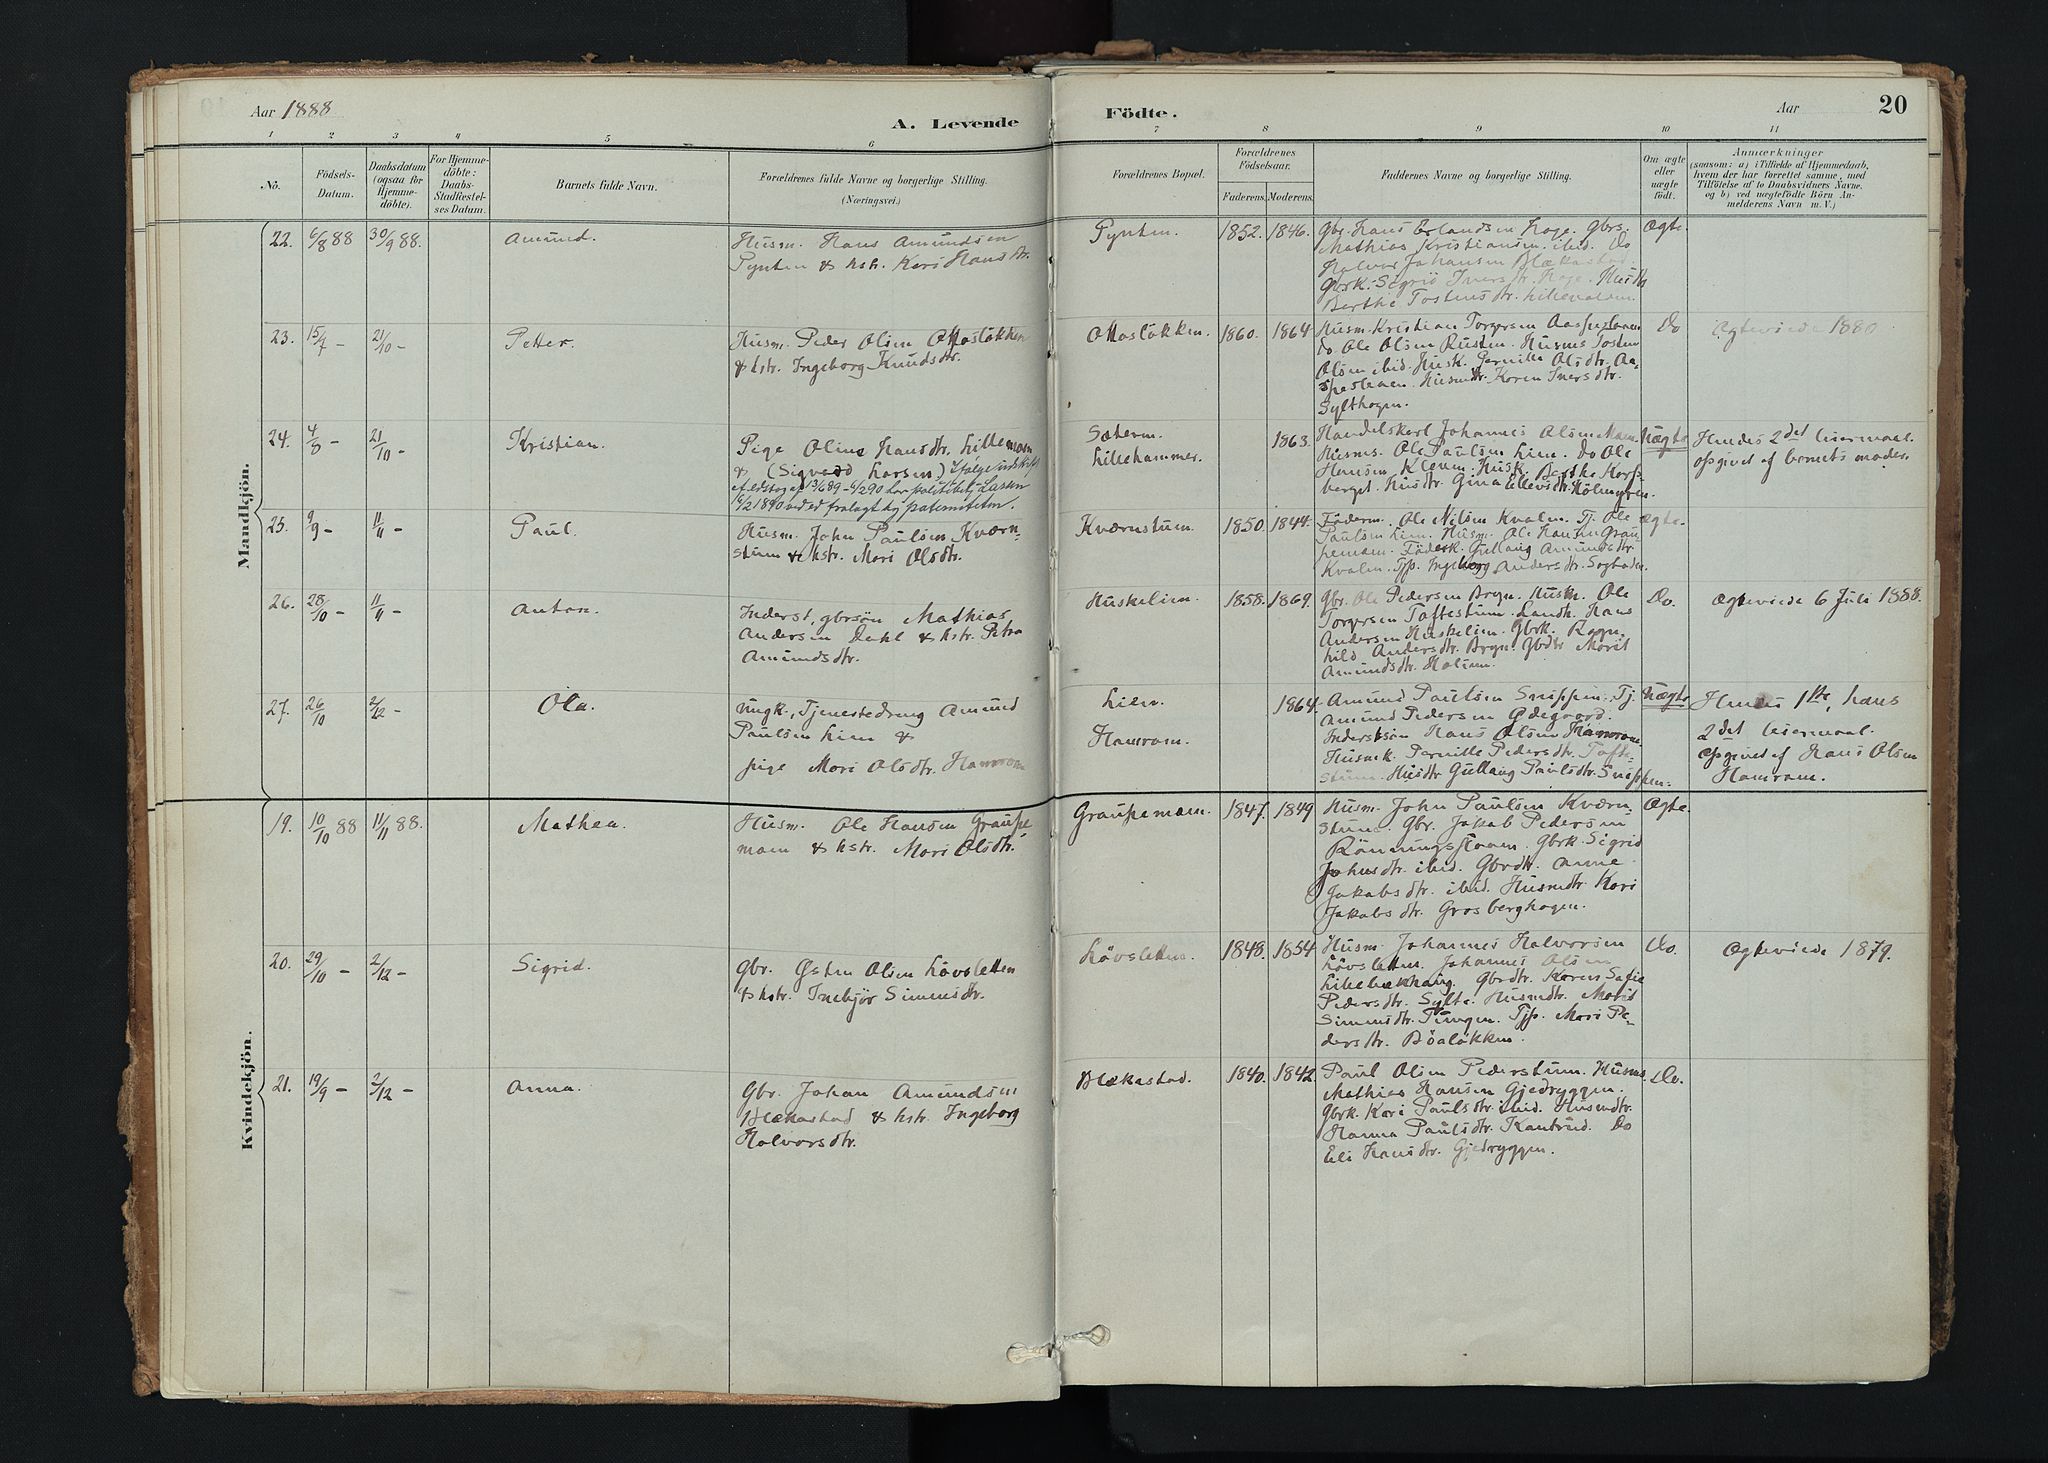 Aar 1888
A. Levende
Födte.
Aar
20
1 2 3 4 5 6 7 8 9 10 11
No.
Födsels-
Datum.
Daabsdatum
(ogsaa for
Hjemme-
döbte).
For Hjemme-
döbte:
Daabs-
Stadfæstel-
ses Datum.
Barnets fulde Navn.
Forældrenes fulde Navne og borgerlige Stilling.
(Næringsvei.)
Forældrenes Bopæl.
Forældrenes
Födselsaar.
Faderens.
Moderens.
Faddernes Navne og borgerlige Stilling.
Om ægte
eller
uægte
födt.
Anmærkninger
(saasom: a) i Tilfælde af Hjemmedaab,
hvem der har forrettet samme, med
Tilföielse af to Daabsvidners Navne,
og b) ved uægtefödte Börn An-
melderens Navn m. V.)
Mandkjön.
22. 6/8 88 30/9 88. Amund.
Husm. Hans Amundsen
Pynten & hstr. Kari Hansdtr.
Pynten. 1852. 1846.
Gbr. Hans Erlandsen Hage. Gbrs.
Mathias Kristiansen ibid. Do
Halvor Johansen Blækastad.
Gbrk. Sigrid Iversdtr. Hage. Husdtr
Berthe Tostensdtr.
Ægte
23. 15/7 - 21/10 - Petter.
Husm. Peder Olsen Ottosløkken
& hstr. Ingeborg Knudsdtr.
Ottosløkken. 1860. 1864
Husm. Kristian Torgersen Aaspeslaaen
Do Ole Olsen Rusten. Husms Tosten
Olsen ibid. Husk. Pernille Olsdtr. Aa-
speslaaen. Husmdtr. Karen Iversdtr.
Sylthagen.
Do Ægteviede 1880
24. 4/8 - 21/10 - Kristian.
Pige Oline Hansdtr. Lillemoen
& (Sigvard Larsen) Ifølge indskrift
13/6 89 - 6/2 90 har politibetj. Larsen
6/2 1890 fralagt sig paterniteten.
Sæterm.
Lillehammer. 1863.
Handelskarl Johannes Olsen Moen.
Husms. Ole Paulsen Lien. Do Ole
Hansen Klevm. Husk. Berthe Kors-
berget. Husdtr. Gina Ellevsdtr. Holmgren.
Uægte
Hendes 2det leiermaal.
opgivet af barnets moder.
25. 9/9 - 11/11 - Paul.
Husm. John Paulsen Kværn-
stuen & hstr. Mari Olsdtr.
Kværnstuen. 1850. 1844.
Föderm. Ole Nilsen Kvalen. Tj. Ole
Paulsen Lien. Husm. Ole Hansen Grau-
pemoen. Födesk. Gullaug Amundsdtr.
Kvalen. Tjp. Ingeborg Andersdtr.
Ægte.
26. 28/10 - 11/11 - Anton.
Inderst, gbrsön Mathias
Andersen Dahl & hstr. Petra
Amundsdtr.
Huskelien. 1858. 1869.
Gbr. Ole Pedersen Bryn. Husm. Ole
Torgersen Toftestuen. Landh. Hans
Andersen Huskelien. Gbrk. Ragn-
hild Andersdtr. Bryn. Gbdtr Marit
Amundsdtr. Holien.
Do. Ægteviede 6 Juli 1888.
27. 26/10 2/12 - Ola.
Ungk., Tjenestedreng Amund
Paulsen Lien &
pige Mari Olsdtr. Hamrom
Lien.
Hamrom. 1864.
Amund Paulsen Snippen. Tj.
Amund Pedersen Ødegaard.
Inderstsön Hans Olsen Hamrom.
Husmk. Pernille Pedersdtr. Tofte-
stuen. Husdtr Gullaug Paulsdtr. Snippen.
Uægte
Hendes 1ste, hans
2det leiermaal.
opgivet af Hans Olsen
Hamrom.
Kvindekjön.
19. 10/10 88 11/11 88. Mathea.
Husm. Ole Hansen Graupe
moen & hstr. Mari Olsdtr.
Graupemoen. 1847. 1849
Husm. John Paulsen Kværn-
stuen. Gbr. Jakob Pedersen
Rönningsstaam. Gbrk. Sigrid
Johnsdtr. ibid. Gbrdtr. Anne
Jakobsdtr. ibid. Husmdtr. Kari
Jakobsdtr. Grosberghagen.
Ægte
20. 29/10 - 2/12 - Sigrid.
Gbr. Østen Olsen Lövsletten
& hstr. Inebjör Simensdtr.
Lövsletten. 1848. 1854
Husm. Johannes Halvorsen
Lövsletten. Johannes Olsen
Lillebækhaug. Gbrdtr. Karen Sofie
Pedersdtr. Sylte. Husmdtr. Marit
Simensdtr. Pungen. Tjp. Mari Pe-
dersdtr. Böaløkken.
Do. Ægteviede 1879.
21. 19/9 - 2/12 - Anna.
Gbr. Johan Amundsen
Blækastad & hstr. Ingeborg
Halvorsdtr.
Blækastad. 1840. 1842
Paul Olsen Pederstuen. Husms.
Mathias Hansen Gjedryggen.
Gbrk. Kari Paulsdtr. ibid. Husmdtr.
Hanna Paulsdtr. Kantrud. Do
Eli Hansdtr. Gjedryggen.
Do.